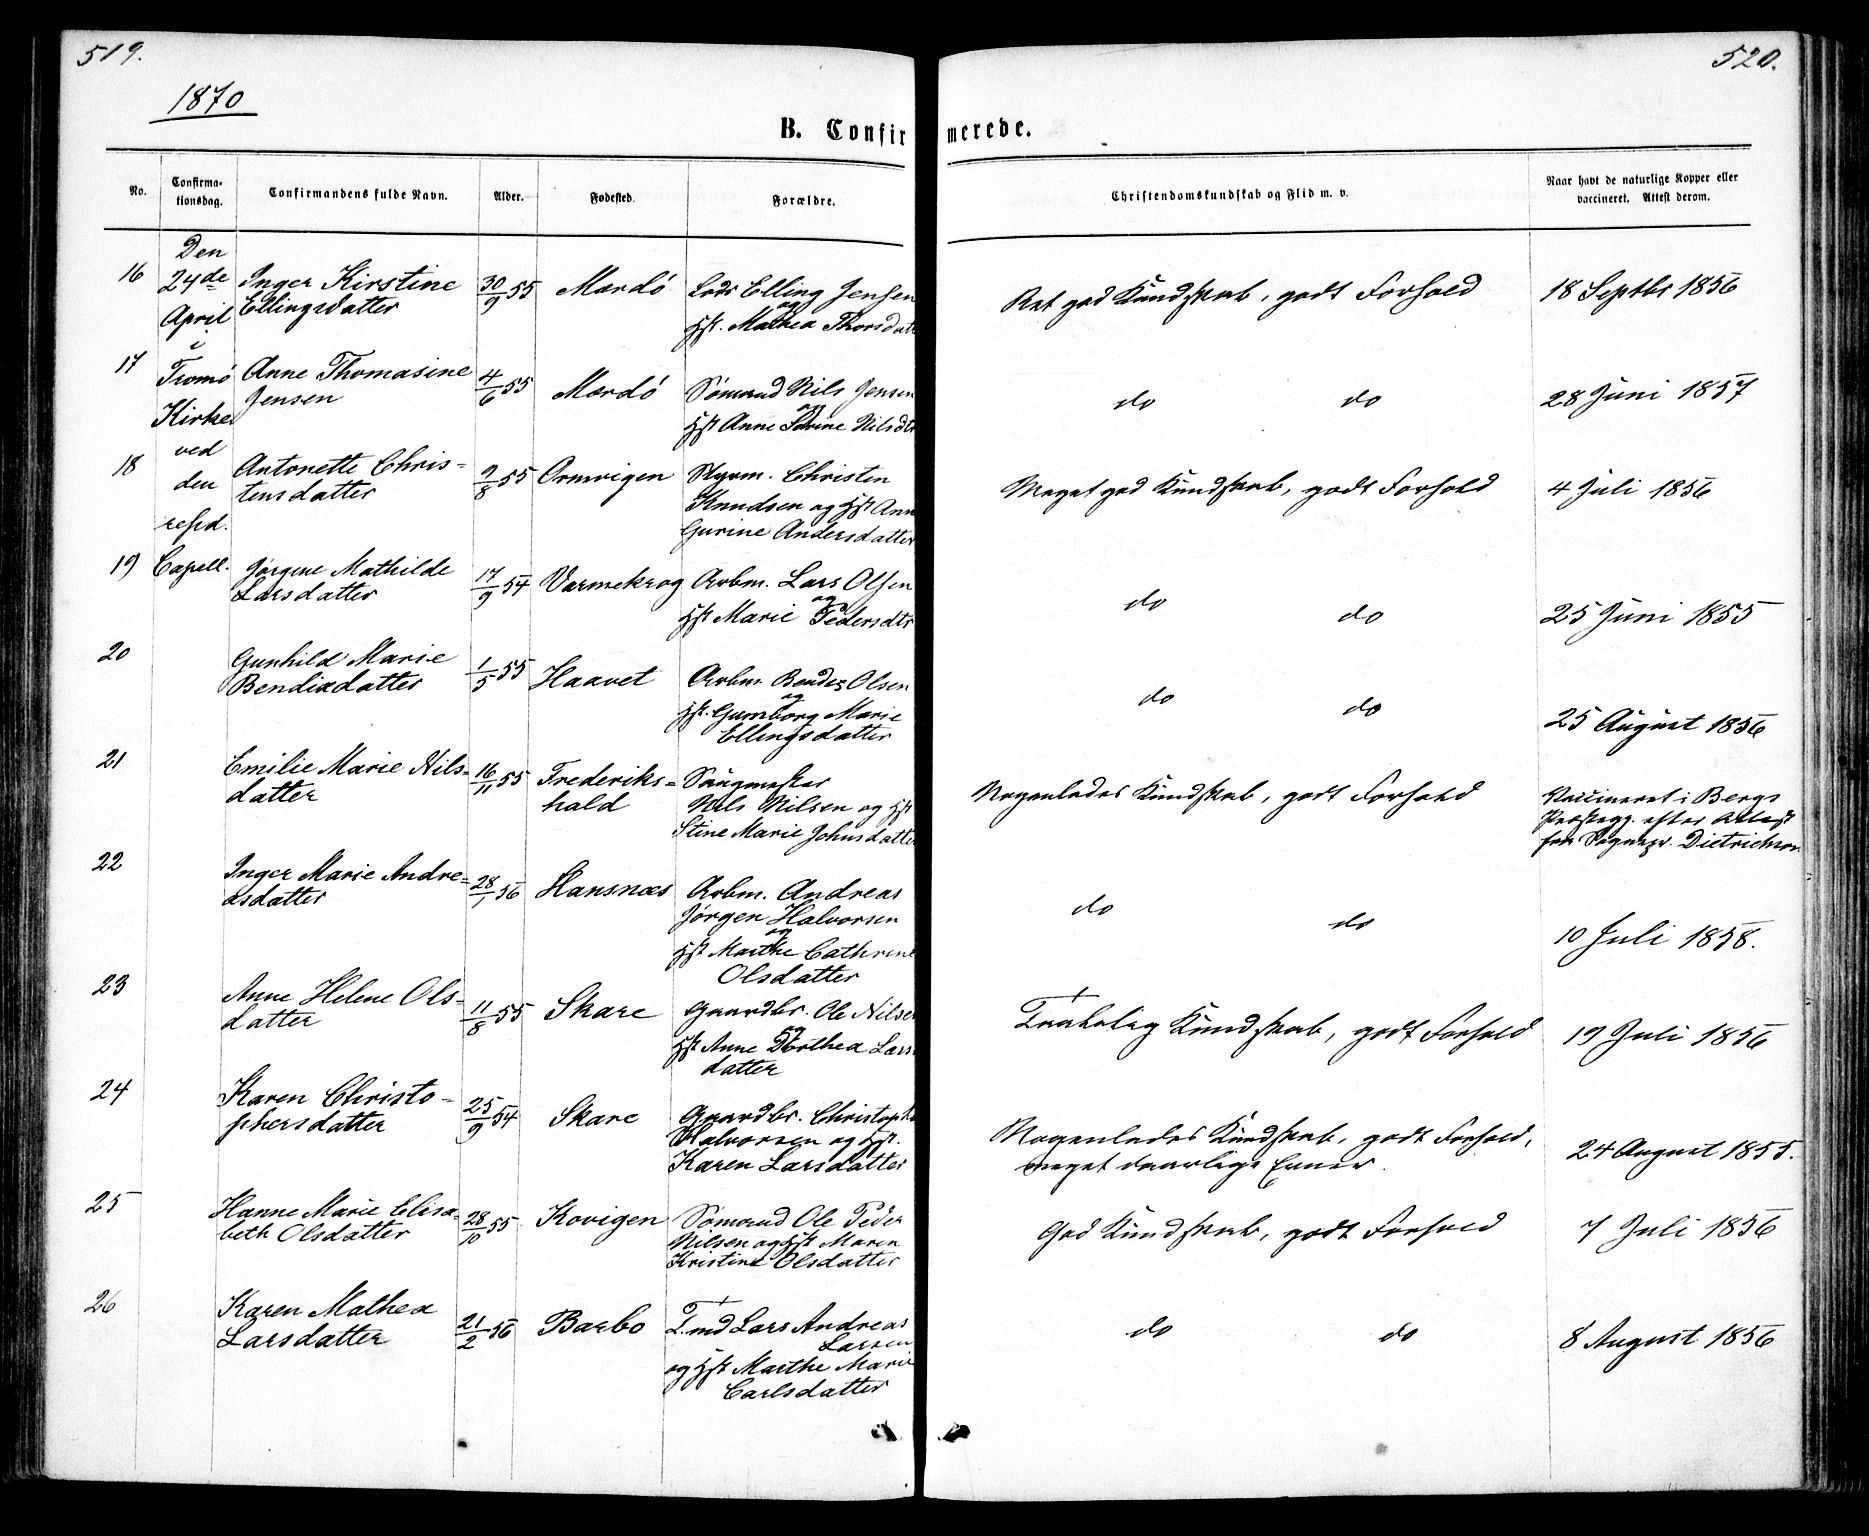 519.
520.
1870
B. Confirmerede.
No.
Confirma-
tionsdag.
Confirmandens fulde Navn.
Alder.
Fødested.
Forældre.
Christendomskundskab og Flid m. v.
Naar havt de naturlige Kopper eller
vaccineret. Attest derom.
Den
24de
April
i
Tromø
Kirke
ved
den
resid.
Capell.
16
Inger Kirstine
Ellingsdatter
30/9 55
Mærdø
Lods Elling Jensen
og
Hst. Mathea Thorsdatt
Ret god Kundskab, godt Forhold
18 Septbr 1856
17
Anne Thomasine
Jensen
4/6 55
Mærdø
Sømand Nils Jensen
og
Hst Anne Nilsdtr
do do
28 Juni 1857
18
Antonette Chris=
tensdatter
9/8 55
Ormvigen
Styrm. Christen
Knudsen og Hst Ann
Gurine Andersdatter
Meget god Kundskab, godt Forhold
4 Juli 1856
19
Jørgine Mathilde
Larsdatter
17/9 54
Varmekrog
Arbm. Lars Olsen
og
Hst Marie Pedersdtr
do do
25 Juni 1855
20
Gunhild Marie
Bendixdatter
1/5 55
Haavet
Arbm. Bendix Olsen
og
Hst. Gumborg Marie
Ellingsdatter
do do
25 August 1856
21
Emilie Marie Nils=
datter
16/11 55
Frederiks=
hald
Saugmester
Nils Nilsen og Hst
Stine Marie Johnsdatter
Nogenledes Kundskab, godt Forhold
Vaccineret i Bergs
Præstegj. efter Attest
fra Sognepr. Dietrichson
22
Inger Marie Andre=
asdatter
28/1 56
Hansnæs
Arbm. Andreas
Jørgen Halvorsen
og
Hst Marthe Cathrine
Olsdatter
do do
10 Juli 1858.
23
Anne Helene Ols=
datter
11/8 55
Skare
Gaardbr. Ole Nilsen
og
Hst Anne Dorthea Lars
datter
Taalelig Kundskab, godt Forhold
19 Juli 1856
24
Karen Christo=
phersdatter
25/9 54
Skare
Gaardbr. Christoph
Halvorsen og Hst.
Karen Larsdatter
Nogenledes Kundskab, godt Forhold,
meget daarlige Evner.
24 August 1855.
25
Hanne Marie Elisa=
beth Olsdatter
28/10 55
Kovigen
Sømand Ole Peder
Nilsen og Hst Maren
Kristine Olsdatter
God Kundskab, godt Forhold
7 Juli 1856
26
Karen Mathea
Larsdatter
21/2 56
Barbo
T.md Lars Andreas
Larsen
og Hst Marthe Marie
Carlsdatter
do do
8 August 1856